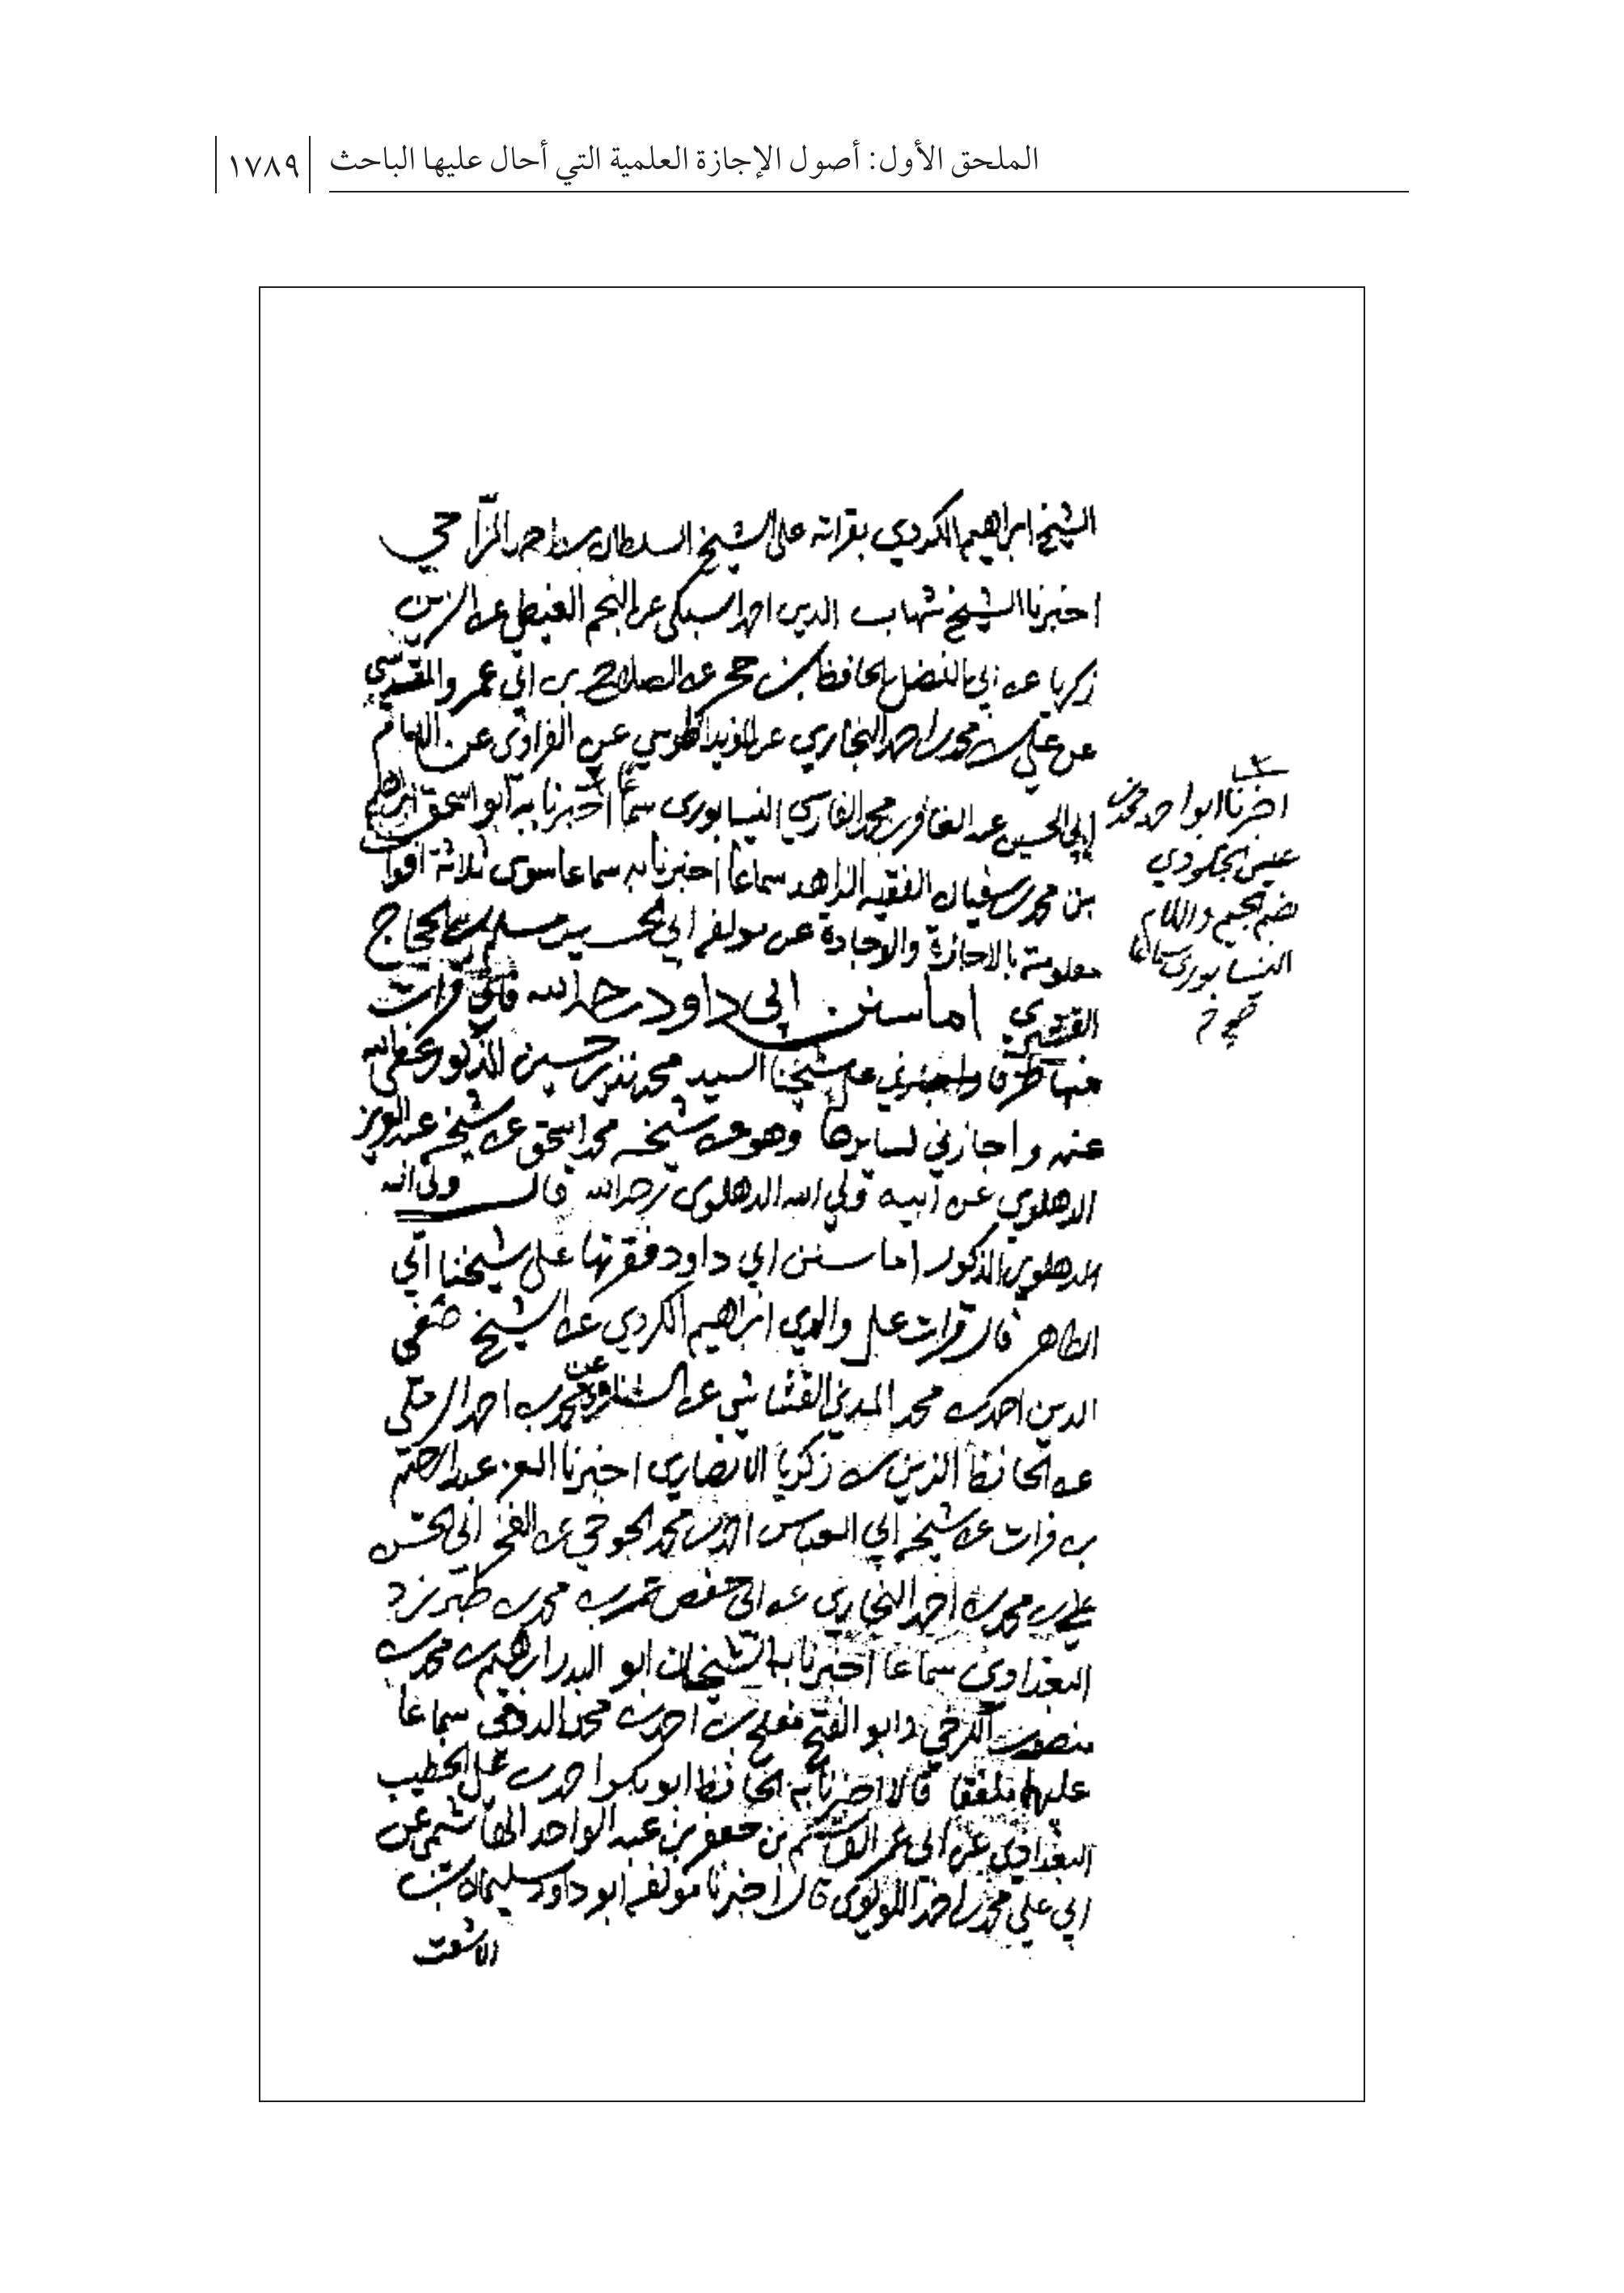 الملحق الأول: أصول الإجازة العلمية التي أحال عليها الباحث
١٧٨٩
الشيخ ابراهيم الكردي بقراته على الشيخ السلطان بن احمد المزّاحي
اخبرنا الشيخ شهاب الدين احمد السبكي عن النجم الغيطي عن الزين
زكريا عن ابي الفضل الحافظ بن حجر عن الصلاح بن ابي عمرو المقدسي
عن علي بن محمد بن احمد البخاري عن المؤيد الطوسي عن الفراوى عن الامام
ابي الحسين عبد الغافر بن محمد الفارسي النيسابورى سماعا اخبرنا به ابو اسحق ابراهيم
بن محمد بن سفيان الفقيه الزاهد سماعا اخبرنا به سماعا سوى ثلاثة افوا
معلومة بالاجازة والاجادة عن مولفه ابي الحسين مسلم بن الحجاج
القشيري اما سنن ابي داود رحمه الله فانى قرات
منها طرفا على شيخنا السيد محمد نذير حسين المذكور عفى الله
عنه واجازني لسايرها وهو عن شيخه محمد اسحق عن شيخه عبد العزيز
الدهلوي عن ابيه ولي الله الدهلوى رحمه الله قال ولي الله
الدهلوي المذكور اما سنن ابي داود فقرتها على شيخنا ابي
الطاهر قال قرات على والدي ابراهيم الكردي عن الشيخ صفي
الدين احمد بن محمد المدني القشاشي عن الشناوي عن محمد بن احمد الرملي
عن الحافظ الزين زكريا الانصارى اخبرنا العز عبد الرحيم
بن فرات عن شيخه ابي العباس احمد بن محمد الجوخي عن الفخر ابي الحسن
علي بن محمد بن احمد البخاري عن ابي حفص عمر بن محمد بن طبرزد
البغدادي سماعا اخبرنا به الشيخان ابو البدر ابراهيم بن محمد بن
منصور الكرخي وابو الفتح مفلح بن احمد بن محمد الدومي سماعا
عليهما ملفقا قالا اخبرنا به الحافظ ابو بكر احمد بن علي الخطيب
البغدادي عن ابي عمر القاسم بن جعفر بن عبد الواحد الهاشمي عن
ابي علي محمد بن احمد اللولوى قال اخبرنا مولفه ابو داود سليمان بن
الاشعث
اخبرنا ابو احمد محمد بن
عيسى الجلودي
بضم الجيم واللام
النيسابورى سماعا